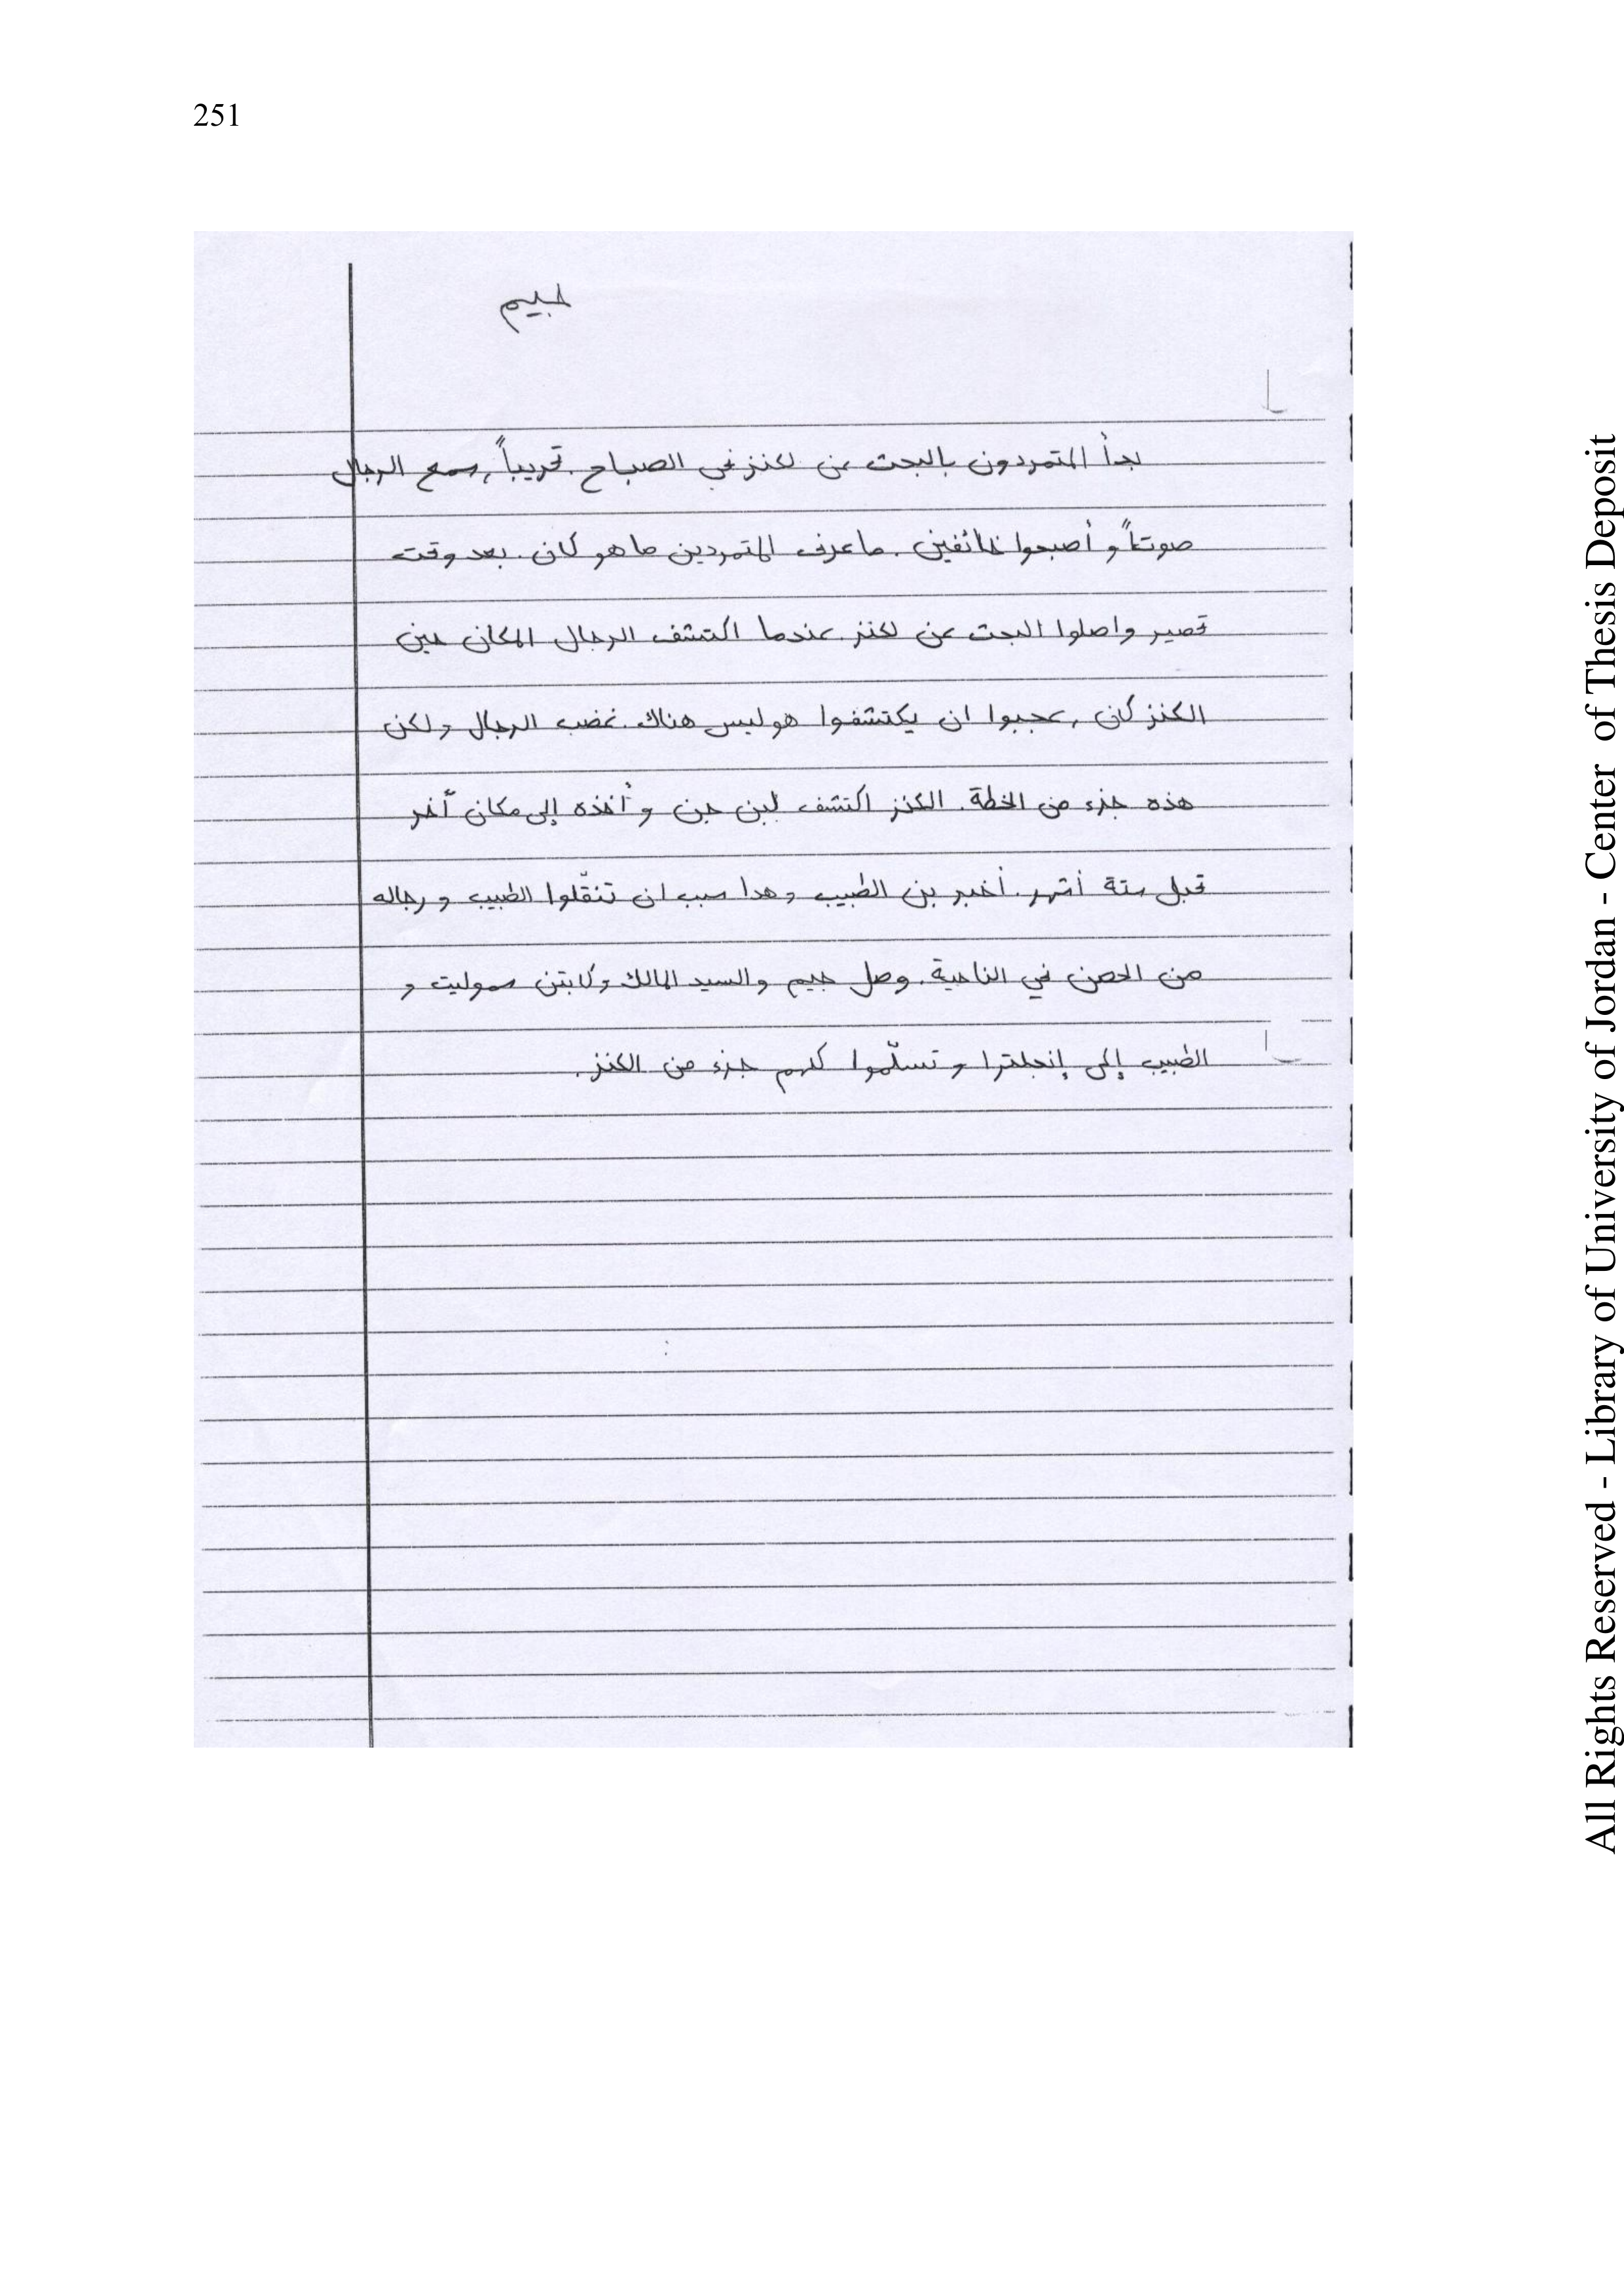 251
جيم
بدأ المتمردون بالبحث عن لكنز في الصباح. تقريباً, سمع الرجال
صوتاً و أصبحوا خائفين. ما عرف المتمردين ما هو كان. بعد وقت
قصير واصلوا البحث عن لكنز. عندما اكتشف الرجال المكان حين
الكنز كان, عجبوا ان يكتشفوا هو ليس هناك. غضب الرجال ولكن
هذه جزء من الخطة. الكنز اكتشف لبن جن و أخذه إلى مكان آخر
قبل ستة أشهر. أخبر بن الطبيب وهدا سبب ان تنقّلوا الطبيب و رجاله
من الحصن في الناحية. وصل جيم والسيد المالك وكابتن سموليت و
الطبيب إلى إنجلترا و تسلّموا كلهم جزء من الكنز.
All Rights Reserved - Library of University of Jordan - Center of Thesis Deposit